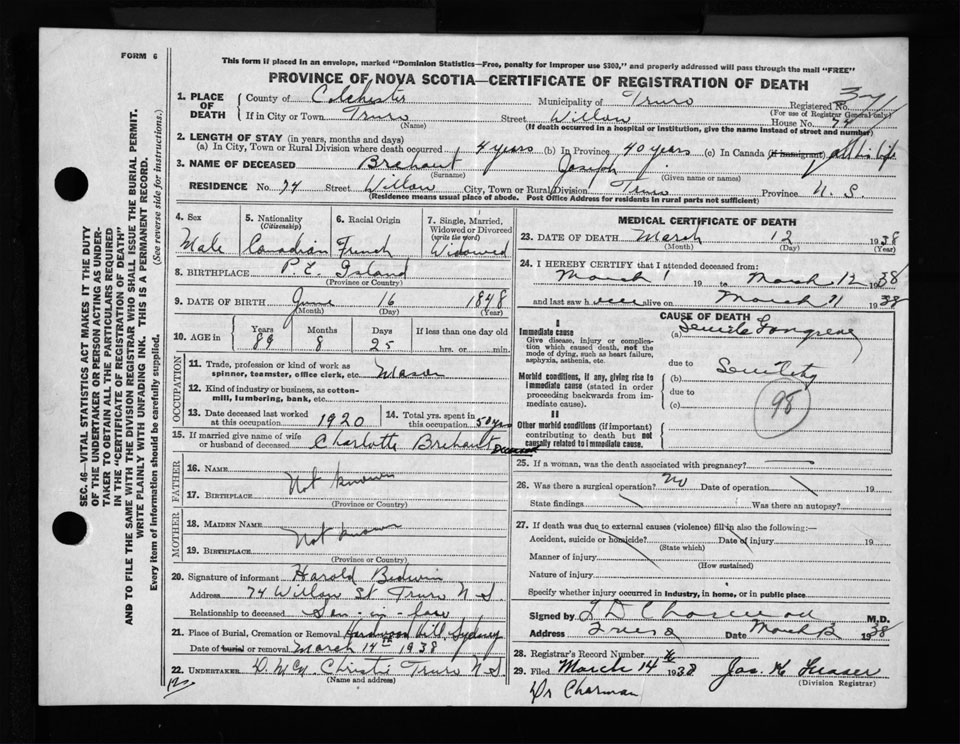 FORM 6
This form if placed in an envelope, marked "Dominion Statistics—Free, penalty for improper use $300," and properly addressed will pass through the mail "FREE"
PROVINCE OF NOVA SCOTIA—CERTIFICATE OF REGISTRATION OF DEATH
SEC. 46—VITAL STATISTICS ACT MAKES IT THE DUTY
OF THE UNDERTAKER OR PERSON ACTING AS UNDER-
TAKER TO OBTAIN ALL THE PARTICULARS REQUIRED
IN THE "CERTIFICATE OF REGISTRATION OF DEATH"
AND TO FILE THE SAME WITH THE DIVISION REGISTRAR WHO SHALL ISSUE THE BURIAL PERMIT.
WRITE PLAINLY WITH UNFADING INK. THIS IS A PERMANENT RECORD.
Every item of information should be carefully supplied. (See reverse side for instructions.)
1. PLACE OF DEATH County of Colchester Municipality of Truro Registered No.
(For use of Registrar General only)
If in City or Town Truro Street Willow House No. 74
(Name) (If death occurred in a hospital or institution, give the name instead of street and number)
2. LENGTH OF STAY (in years, months and days)
(a) In City, Town or Rural Division where death occurred 4 years (b) In Province 40 years (c) In Canada (if immigrant) all his life
3. NAME OF DECEASED Brehaut Joseph
(Surname) (Given name or names)
RESIDENCE No. 74 Street Willow City, Town or Rural Division Truro Province N. S.
(Residence means usual place of abode. Post Office Address for residents in rural parts not sufficient)
4. Sex Male
5. Nationality (Citizenship) Canadian
6. Racial Origin French
7. Single, Married, Widowed or Divorced (write the word) Widowed
8. BIRTHPLACE P. E. Island
(Province or Country)
9. DATE OF BIRTH June 16 1848
(Month) (Day) (Year)
10. AGE in Years 89 Months 8 Days 25 If less than one day old
hrs. or min.
OCCUPATION
11. Trade, profession or kind of work as spinner, teamster, office clerk, etc. Mason
12. Kind of industry or business, as cotton-mill, lumbering, bank, etc.
13. Date deceased last worked at this occupation 1920
14. Total yrs. spent in this occupation 50 yrs
15. If married give name of wife or husband of deceased Charlotte Brehault
FATHER
16. NAME Not known
17. BIRTHPLACE
MOTHER
18. MAIDEN NAME Not known
19. BIRTHPLACE
(Province or Country)
20. Signature of informant Harold
Address 74 Willow St Truro N S.
Relationship to deceased Son-in-law
21. Place of Burial, Cremation or Removal Hardwood Hill, Sydney
Date of burial or removal March 14th 1938
22. UNDERTAKER Christie Truro N S.
(Name and address)
MEDICAL CERTIFICATE OF DEATH
23. DATE OF DEATH March 12 1938
(Month) (Day)
24. I HEREBY CERTIFY that I attended deceased from:
March 1 19 to March 12 1938
and last saw h alive on March 11 1938
CAUSE OF DEATH
I
Immediate cause
Give disease, injury or complication which caused death, not the mode of dying, such as heart failure, asphyxia, asthenia, etc.
(a) Senile Gangrene
due to
Morbid conditions, if any, giving rise to immediate cause (stated in order proceeding backwards from immediate cause).
(b) Senility
due to
(c)
98
II
Other morbid conditions (if important) contributing to death but not causally related to immediate cause.
25. If a woman, was the death associated with pregnancy?
26. Was there a surgical operation? No Date of operation 19
State findings Was there an autopsy?
27. If death was due to external causes (violence) fill in also the following:
Accident, suicide or homicide? Date of injury 19
(State which)
Manner of injury
(How sustained)
Nature of injury
Specify whether injury occurred in industry, in home, or in public place
Signed by M.D.
Address Truro Date March 1938
28. Registrar's Record Number
29. Filed March 14 1938 Jas. H. Fraser
(Division Registrar)
Dr Charman